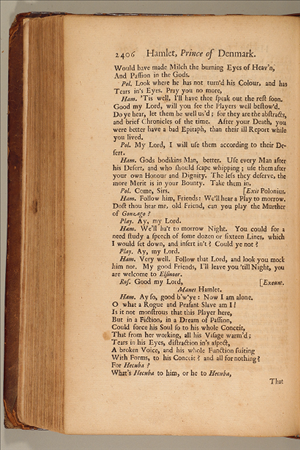 2406 Hamlet, Prince of Denmark.
Would have made Milch the burning Eyes of Heav'n,
And Passion in the Gods.
Pol. Look where he has not turn'd his Colour, and has
Tears in's Eyes. Pray you no more.
Ham. 'Tis well, I'll have thee speak out the rest soon.
Good my Lord, will you see the Players well bestow'd.
Do ye hear, let them be well us'd; for they are the abstracts,
and brief Chronicles of the time. After your Death, you
were better have a bad Epitaph, than their ill Report while
you lived.
Pol. My Lord, I will use them according to their De-
sert.
Ham. Gods bodikins Man, better. Use every Man after
his Desert, and who should scape whipping; use them after
your own Honour and Dignity. The less they deserve, the
more Merit is in your Bounty. Take them in.
Pol. Come, Sirs. [Exit Polonius.
Ham. Follow him, Friends: We'll hear a Play to morrow.
Dost thou hear me, old Friend, can you play the Murther
of Gonzago?
Play. Ay, my Lord.
Ham. We'll ha't to morrow Night. You could for a
need study a speech of some dozen or sixteen Lines, which
I would set down, and insert in't? Could ye not?
Play. Ay, my Lord.
Ham. Very well. Follow that Lord, and look you mock
him not. My good Friends, I'll leave you 'till Night, you
are welcome to Elsinoor.
Ros. Good my Lord, [Exeunt.
Manet Hamlet.
Ham. Ay so, good b'w'ye: Now I am alone.
O what a Rogue and Peasant Slave am I!
Is it not monstrous that this Player here,
But in a Fiction, in a Dream of Passion,
Could force his Soul so to his whole Conceit,
That from her working, all his Visage warm'd;
Tears in his Eyes, distraction in's aspect,
A broken Voice, and his whole Function suiting
With Forms, to his Conceit? and all for nothing?
For Hecuba?
What's Hecuba to him, or he to Hecuba,
That